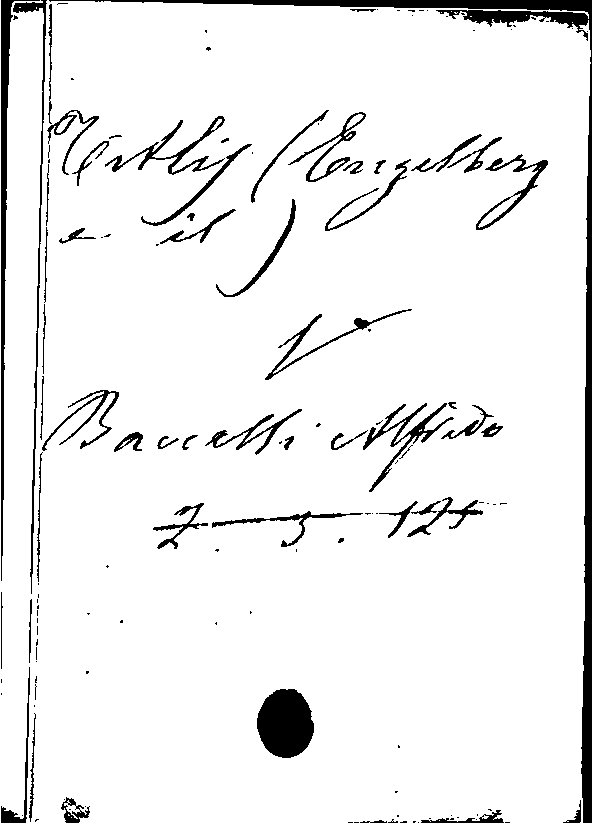 Titlis (Engelberg
e il)
V
Baccelli Alfredo
2. 3. 121